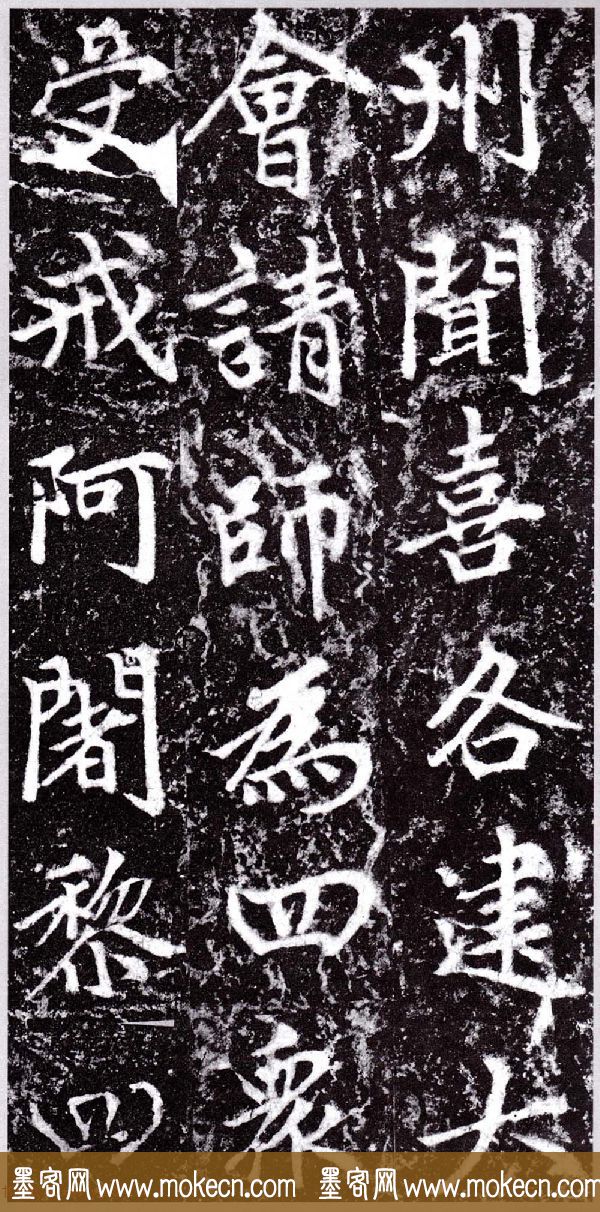 州聞喜各建大
會請師為四衆
受戒阿闍黎四
墨客网 www.mokecn.com 墨客网 www.mokecn.com